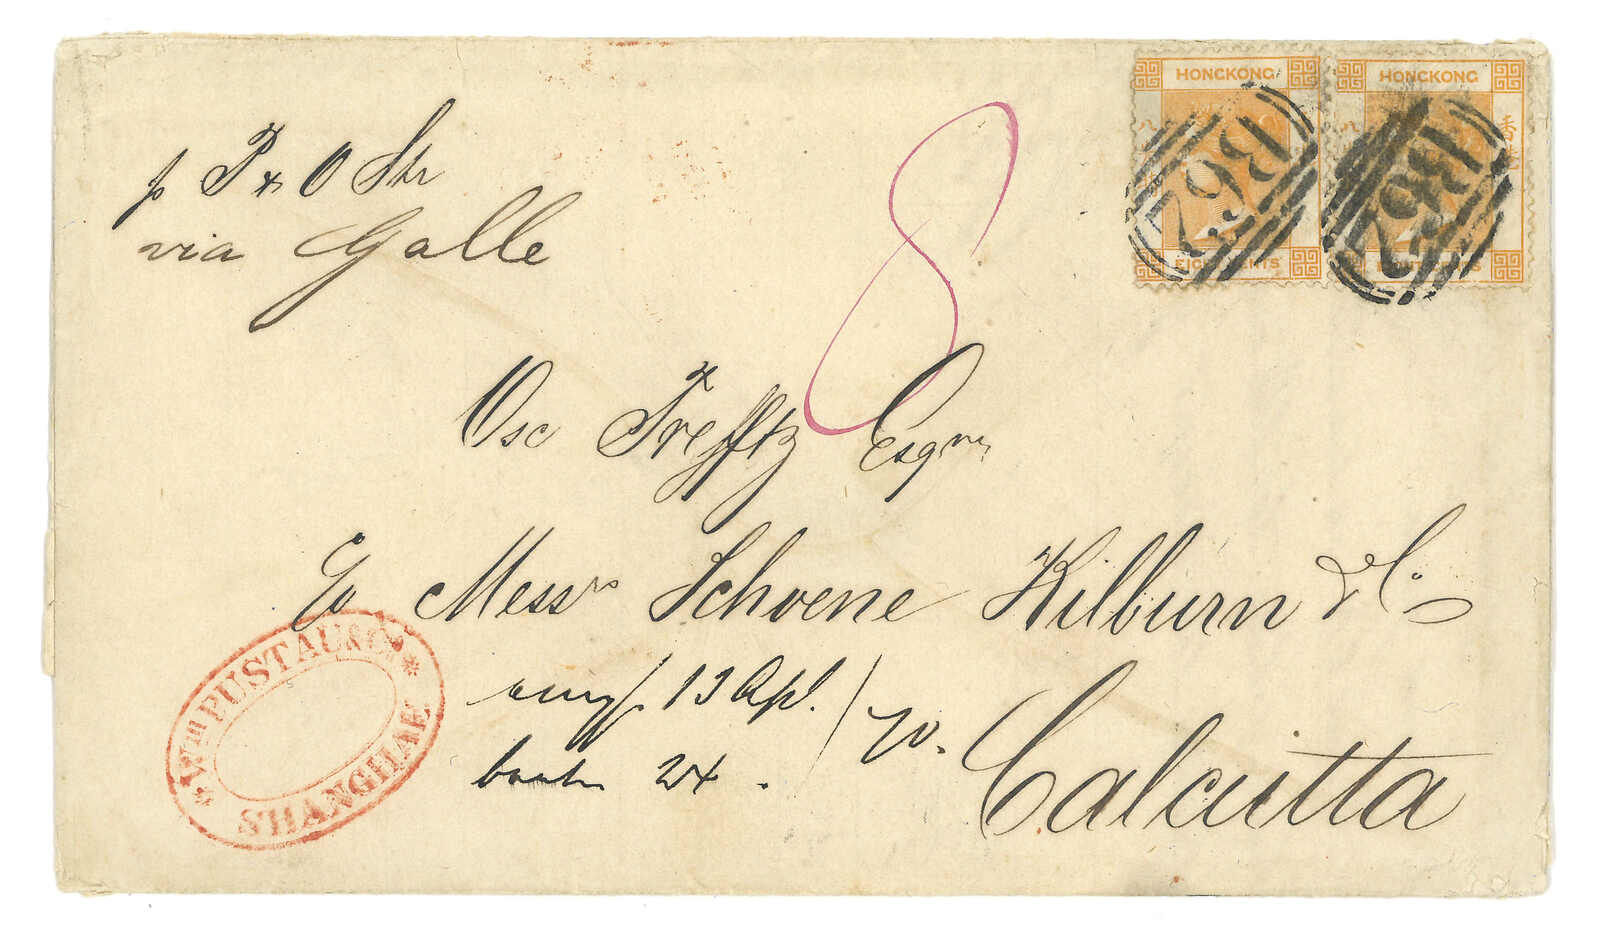 HONGKONG HONGKONG
八 八 香
B62 B62
EIGHT CENTS EIGHT CENTS
p P & O Str
via Galle
8
Osc Trefftz Esqre
Co Messrs Schoene Kilburn & Co
Wm PUSTAU & Co
SHANGHAE
empf 13 Apl. / 70.
beantw 24.
Calcutta